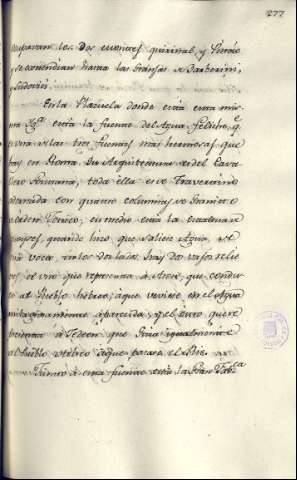 277
ocuparon los dos cuernos quirinal, y Pincio
y se extendian hasta las granjas de Barberini,
y Ludovisi.
En la Plazuela donde está esta mis-
ma Yg.ª está la fuente del Agua Felice, q.e
es una de las tres fuentes mas hermosas que
hay en Roma. Su Arquitectura es del Cava-
llero Fontana, toda ella es de Travertino
adornada con quatro columnas de Granito
de orden Jonico, en medio está la estatua de
Moyses, quando hizo que saliese Agua, de
una roca, en los dos lados hay dos vaxos relie-
ves, el uno que representa á Aron, que condu-
ce al Pueblo hebreo, á que beviese en el Agua
milagrosamente aparecida, y el otro que re-
presenta á Gedeon que guia igualmente
al Pueblo Hebreo á que pasase el Rio.
Junto á esta fuente está la Gran